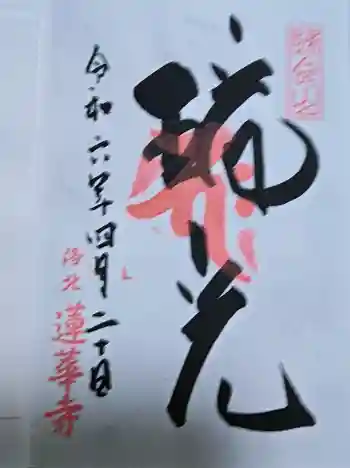 琉光
令和六年四月二十日
洛北
蓮華寺